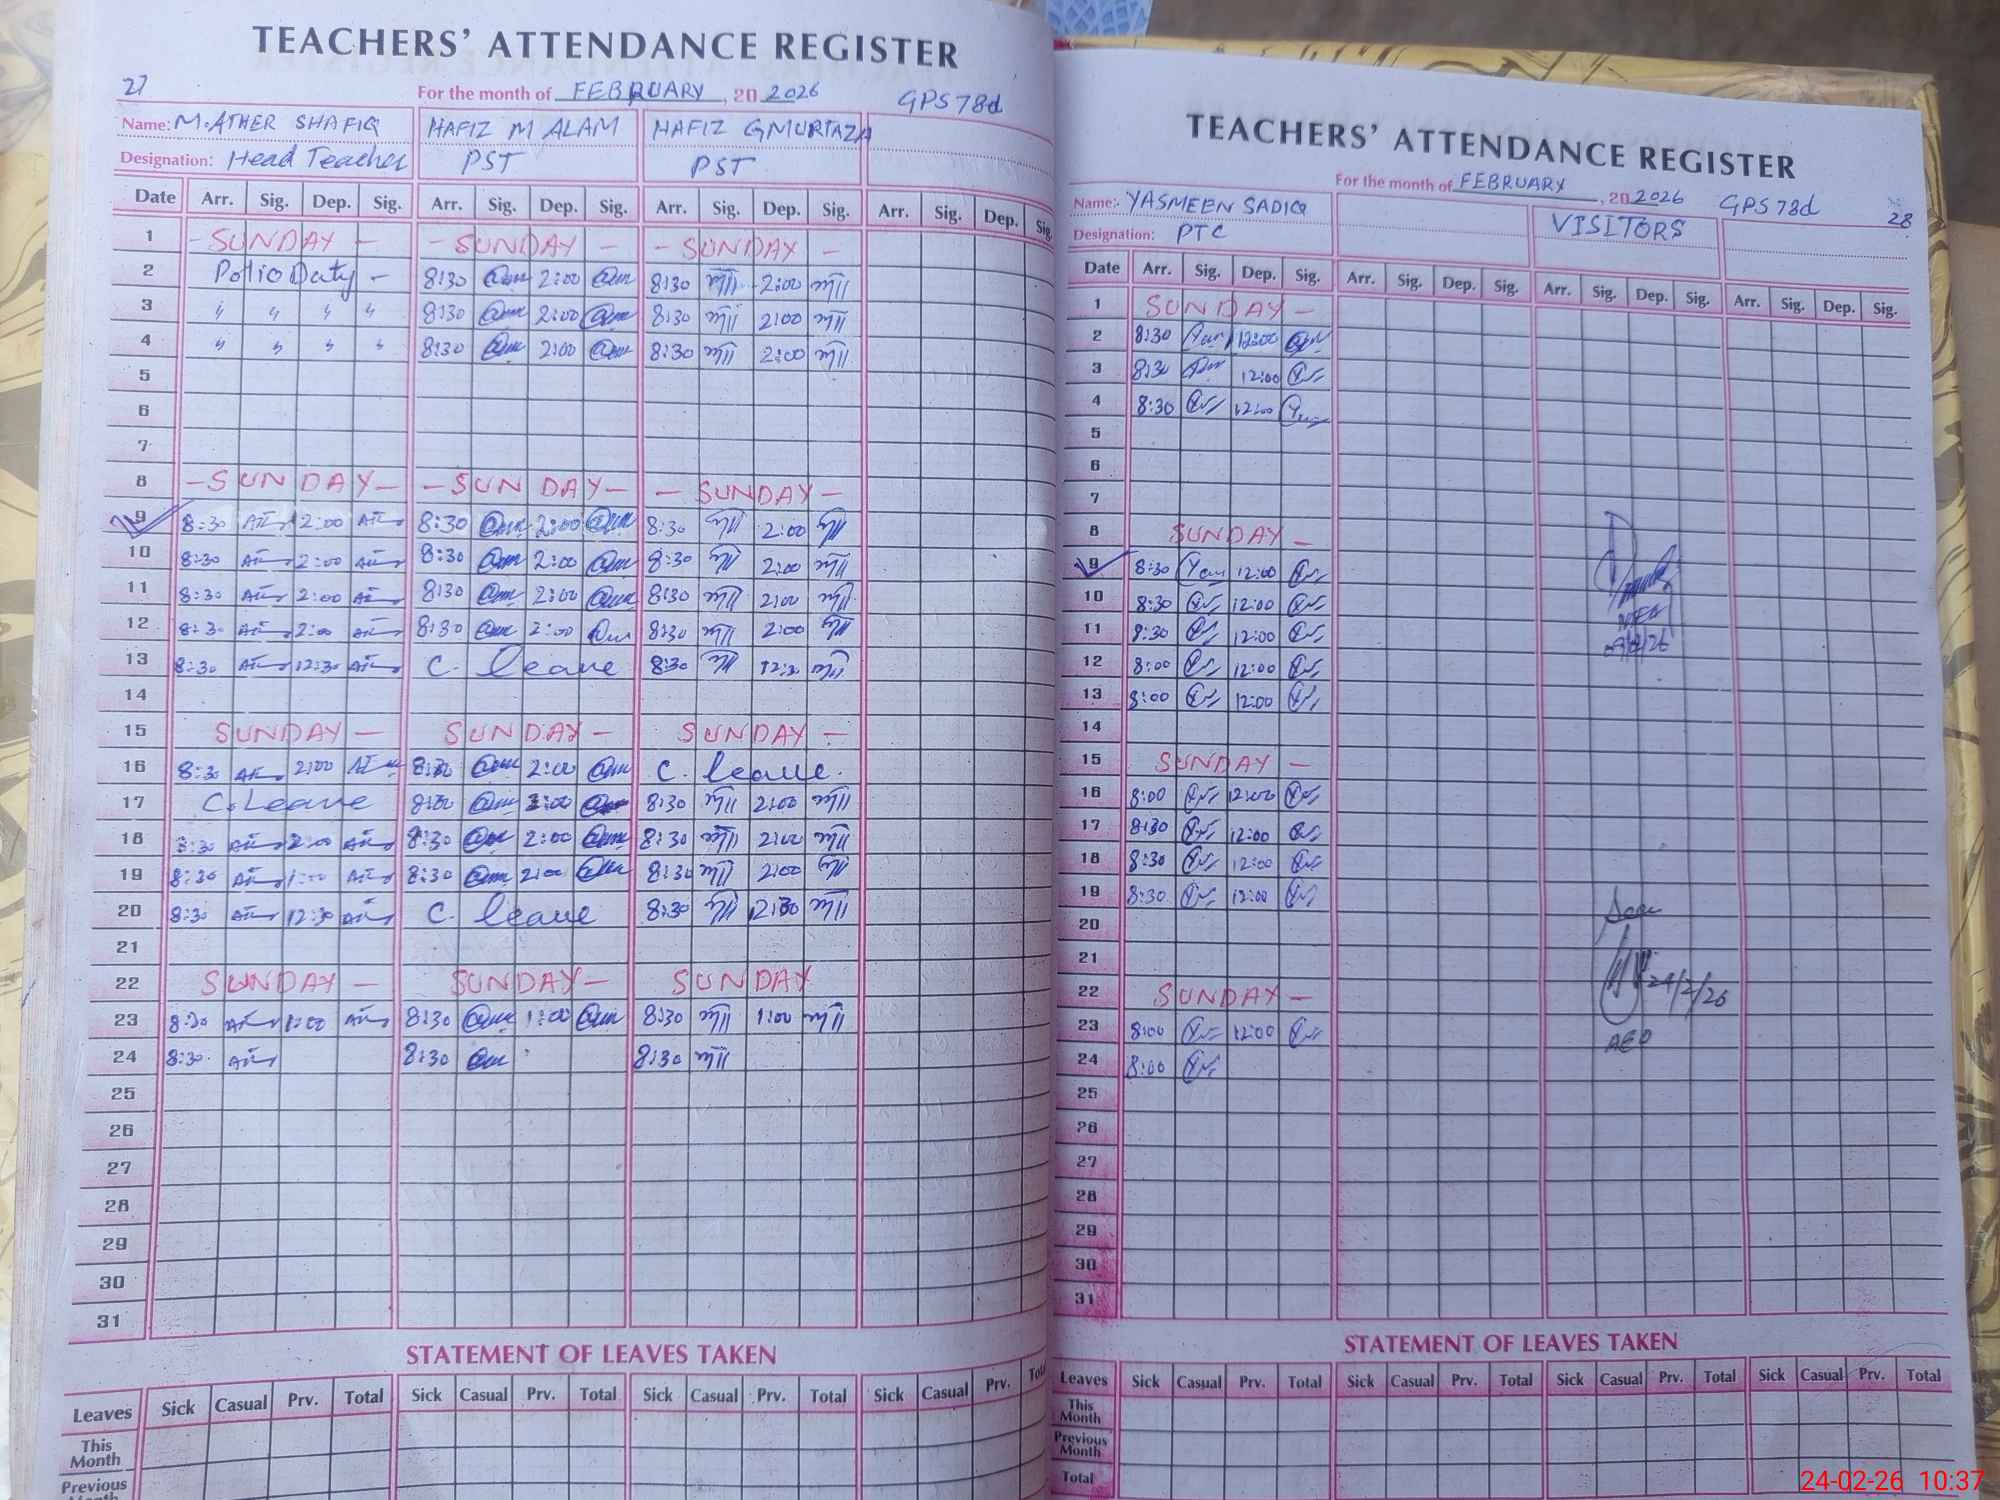 TEACHERS' ATTENDANCE REGISTER
27 For the month of FEBRUARY, 20 2026 GPS 78d
Name: M. ATHER SHAFIQ HAFIZ M ALAM HAFIZ G MURTAZA
Designation: Head Teacher PST PST
Date Arr. Sig. Dep. Sig. Arr. Sig. Dep. Sig. Arr. Sig. Dep. Sig. Arr. Sig. Dep. Sig.
1 - SUNDAY - - SUNDAY - - SUNDAY -
2 Polio Duty - 8:30 2:00 8:30 2:00
3 " " " " 8:30 2:00 8:30 2:00
4 " " " " 8:30 2:00 8:30 2:00
5
6
7
8 - SUNDAY - - SUNDAY - - SUNDAY -
9 8:30 2:00 8:30 2:00 8:30 2:00
10 8:30 2:00 8:30 2:00 8:30 2:00
11 8:30 2:00 8:30 2:00 8:30 2:00
12 8:30 2:00 8:30 2:00 8:30 2:00
13 8:30 12:30 C. leave 8:30
14
15 SUNDAY - SUNDAY - SUNDAY -
16 8:30 2:00 8:30 2:00 C. leave.
17 C. Leave 2:00 8:30 2:00
18 8:30 2:00 8:30 2:00 8:30 2:00
19 8:30 8:30 2:00 8:30 2:00
20 8:30 12:30 C. leave 8:30 12:30
21
22 SUNDAY - SUNDAY - SUNDAY
23 8:30 1:00 8:30 1:00 8:30 1:00
24 8:30 8:30 8:30
25
26
27
28
29
30
31
STATEMENT OF LEAVES TAKEN
Leaves Sick Casual Prv. Total Sick Casual Prv. Total Sick Casual Prv. Total Sick Casual Prv. Total
This Month
Previous
TEACHERS' ATTENDANCE REGISTER
For the month of FEBRUARY, 20 2026 GPS 78d 28
Name: YASMEEN SADIQ VISITORS
Designation: PTC
Date Arr. Sig. Dep. Sig. Arr. Sig. Dep. Sig. Arr. Sig. Dep. Sig. Arr. Sig. Dep. Sig.
1 SUNDAY -
2 8:30 12:00
3 8:30 12:00
4 8:30 12:00
5
6
7
8 SUNDAY -
9 8:30 12:00
10 8:30 12:00
11 8:30 12:00
12 8:00 12:00
13 8:00 12:00
14
15 SUNDAY -
16 8:00 12:00
17 8:30 12:00
18 8:30 12:00
19 8:30 12:00
20
21
22 SUNDAY - 24/2/26
23 8:00 12:00 AEO
24 8:00
25
26
27
28
29
30
31
STATEMENT OF LEAVES TAKEN
Leaves Sick Casual Prv. Total Sick Casual Prv. Total Sick Casual Prv. Total Sick Casual Prv. Total
This Month
Previous Month
Total
24-02-26 10:37